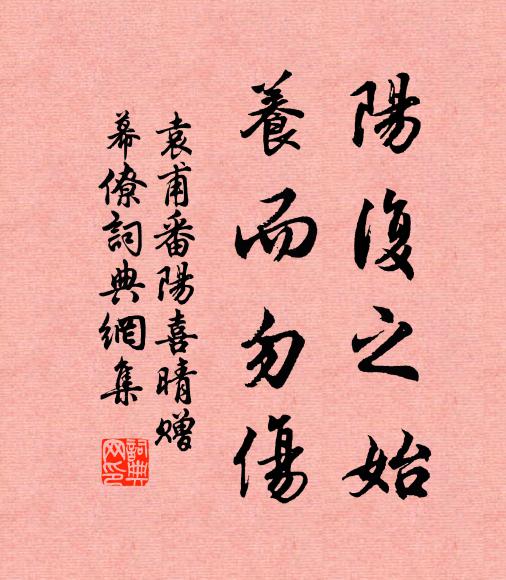 陽復之始
養而勿傷
袁甫番陽喜晴贈
幕僚詞典網集
詞典網印